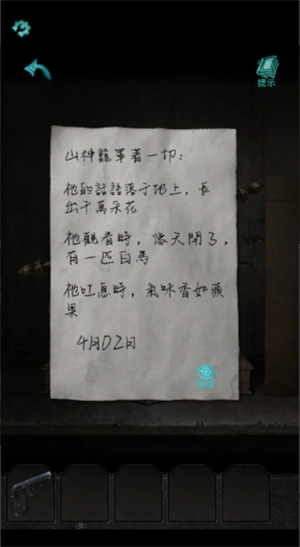 提示
山神籠罩着一切：
祂的話語落于地上，長
出千萬朵花
祂觀看時，條天閉了，
有一匹白馬
祂吐息時，氣味香如蘋
果
4月02日